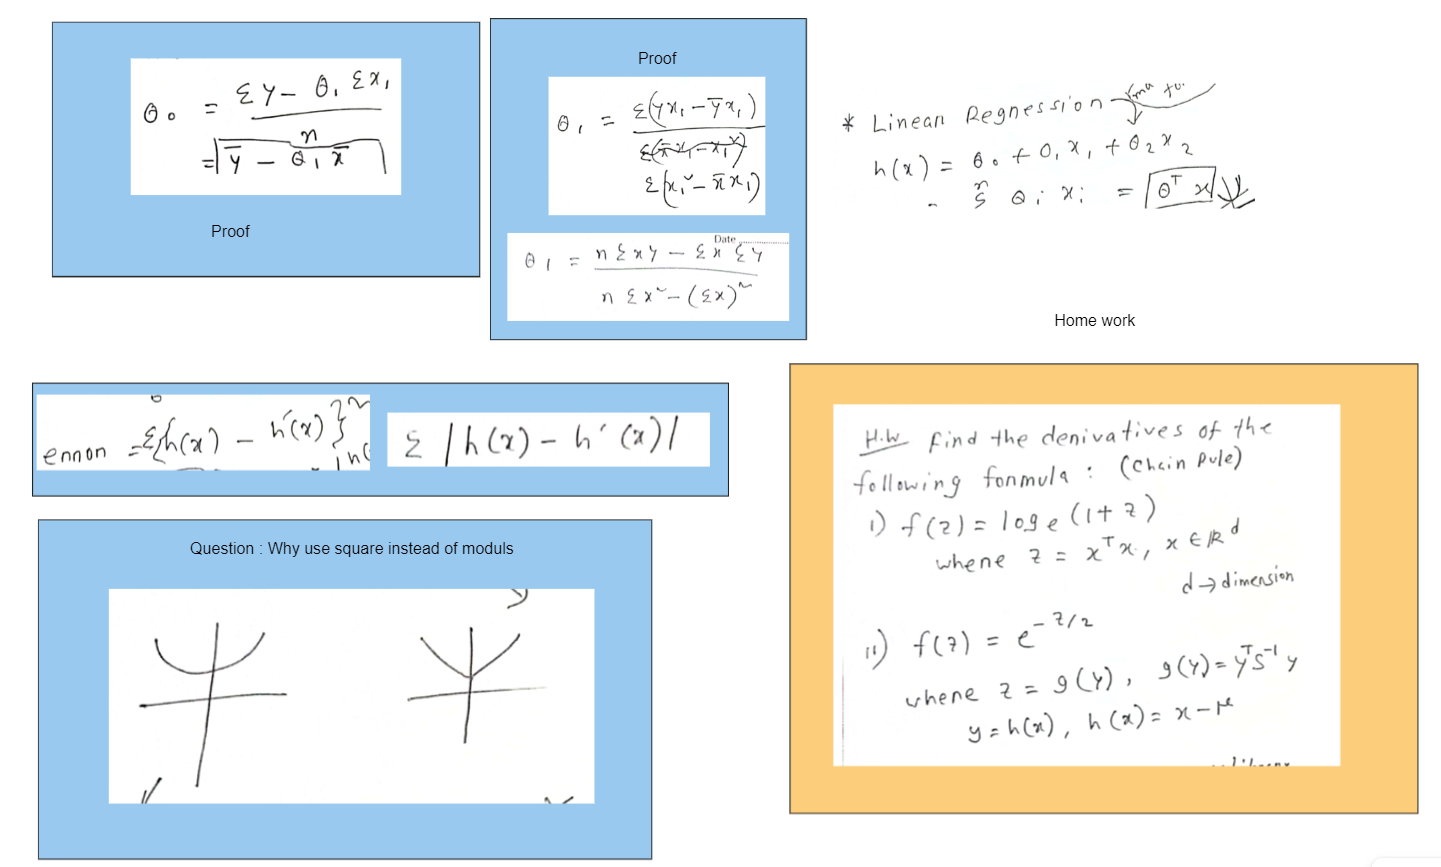 θ₀ = Σy - θ₁ Σx₁ / n
= ȳ - θ₁ x̄
Proof
Proof
θ₁ = Σ(yx₁ - ȳx₁) /
Σ(x₁² - x̄x₁)
Date
θ₁ = nΣxy - ΣxΣy / nΣx² - (Σx)²
* Linear Regression
h(x) = θ₀ + θ₁x₁ + θ₂x₂
= Σ θᵢ xᵢ = θᵀx
Home work
error = Σ{h(x) - h′(x)}²
Σ |h(x) - h′(x)|
Question : Why use square instead of moduls
H.W Find the derivatives of the
following formula : (Chain Rule)
i) f(z) = logₑ(1+z)
where z = xᵀx, x ∈ ℝᵈ
d → dimension
ii) f(z) = e^(-z/2)
where z = g(y), g(y) = yᵀS⁻¹y
y = h(x), h(x) = x - μ